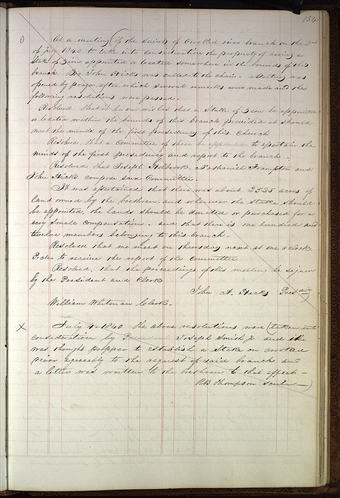 156
At a meeting of the saints of Crooked river branch on the
of July 1840 to take into consideration the propriety of having a
Stake of Zion appointed & located somewhere in the bounds of this
branch. Br John Hicks was called to the chair. Meeting was
opened by prayer after which several remarks were made and the
following resolutions were passed.
Resolved that it be our wishes that a Stake of Zion be appointed
& located within the bounds of this branch provided it should
meet the minds of the first presidency of this Church
Resolved that a Committee of three be appointed to ascertain the
minds of the first presidency and report to the branch.
Resolved that Joseph Holbrook, Nathaniel Frampton and
John Hicks compose said Committee.
It was ascertained that there was about 2525 acres of
land owned by the brethren and wherever the stake should
be appointed, the lands should be donated or purchased for a
very small compensation. And that there is one hundred and
twelve members belonging to this branch.
Resolved that we meet on thursday next at one o clock
P.M. to receive the report of the Committee
Resolved, that the proceedings of this meeting be signed
by the President and Clerk
John A. Hicks Prest
William Whiteman Clerk.
X July 4 1840 The above resolutions were taken into
consideration by Joseph Smith Jr and
was thought propper to establish a Stake on
river agreeably to the request of said branch and
a letter was written to the brethren to that effect
R B Thompson